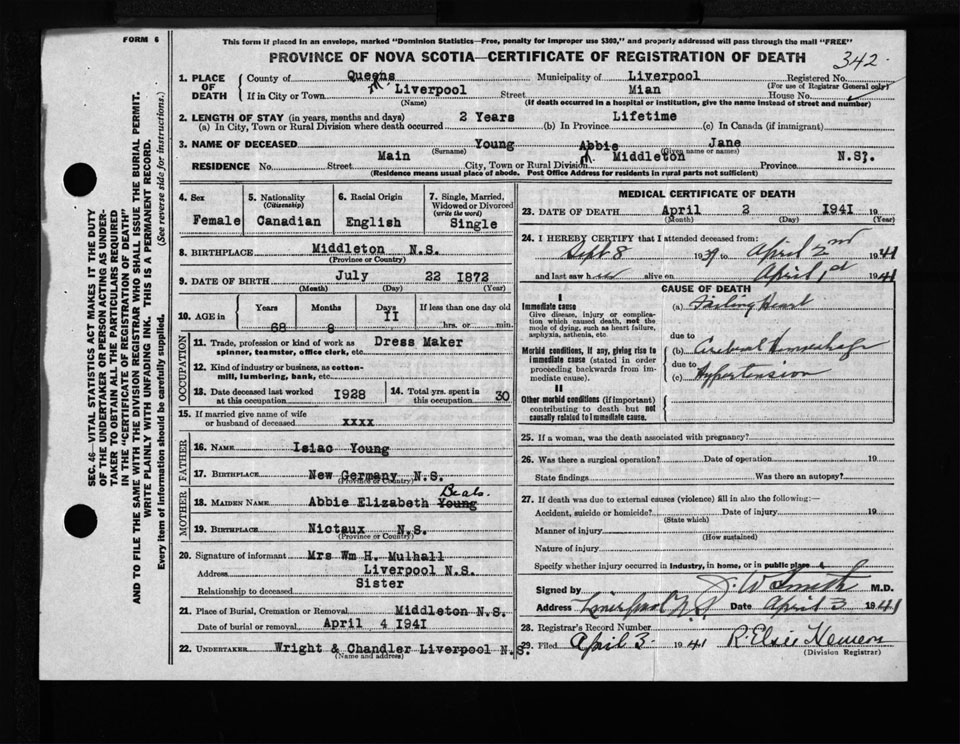 FORM 6
This form if placed in an envelope, marked "Dominion Statistics—Free, penalty for improper use $300," and properly addressed will pass through the mail "FREE"
PROVINCE OF NOVA SCOTIA—CERTIFICATE OF REGISTRATION OF DEATH 342.
1. PLACE OF DEATH County of Queens Municipality of Liverpool Registered No.
(For use of Registrar General only)
If in City or Town Liverpool Street Mian House No.
(Name) (If death occurred in a hospital or institution, give the name instead of street and number)
2. LENGTH OF STAY (in years, months and days)
(a) In City, Town or Rural Division where death occurred 2 Years (b) In Province Lifetime (c) In Canada (if immigrant)
3. NAME OF DECEASED Young Abbie Jane
(Surname) (Given name or names)
RESIDENCE No. Street Main City, Town or Rural Division Middleton Province N.S.
(Residence means usual place of abode. Post Office Address for residents in rural parts not sufficient)
4. Sex Female
5. Nationality (Citizenship) Canadian
6. Racial Origin English
7. Single, Married, Widowed or Divorced (write the word) Single
8. BIRTHPLACE Middleton N.S.
(Province or Country)
9. DATE OF BIRTH July 22 1872
(Month) (Day) (Year)
10. AGE in Years Months Days If less than one day old
68 8 II hrs. or min.
OCCUPATION
11. Trade, profession or kind of work as spinner, teamster, office clerk, etc. Dress Maker
12. Kind of industry or business, as cotton-mill, lumbering, bank, etc.
13. Date deceased last worked at this occupation I928
14. Total yrs. spent in this occupation 30
15. If married give name of wife or husband of deceased xxxx
FATHER
16. NAME Isiac Young
17. BIRTHPLACE New Germany N.S.
(Province or Country)
MOTHER
18. MAIDEN NAME Abbie Elizabeth Young Beals.
19. BIRTHPLACE Nictaux N.S.
(Province or Country)
20. Signature of informant Mrs Wm H. Mulhall
Address Liverpool N.S.
Relationship to deceased Sister
21. Place of Burial, Cremation or Removal Middleton N.S.
Date of burial or removal April 4 I94I
22. UNDERTAKER Wright & Chandler Liverpool N.S.
(Name and address)
MEDICAL CERTIFICATE OF DEATH
23. DATE OF DEATH April 2 I94I 19
(Month) (Day) (Year)
24. I HEREBY CERTIFY that I attended deceased from:
Sept 8 1939 to April 2nd 1941
and last saw her alive on April 1 1941
CAUSE OF DEATH
I
Immediate cause
Give disease, injury or complication which caused death, not the mode of dying, such as heart failure, asphyxia, asthenia, etc.
(a) Failing Heart
due to
Morbid conditions, if any, giving rise to immediate cause (stated in order proceeding backwards from immediate cause).
(b) Cerebral Hemorrhage
due to
(c) Hypertension
II
Other morbid conditions (if important) contributing to death but not causally related to immediate cause.
25. If a woman, was the death associated with pregnancy?
26. Was there a surgical operation? Date of operation 19
State findings Was there an autopsy?
27. If death was due to external causes (violence) fill in also the following:—
Accident, suicide or homicide? Date of injury 19
(State which)
Manner of injury
(How sustained)
Nature of injury
Specify whether injury occurred in industry, in home, or in public place
Signed by J. W Smith M.D.
Address Liverpool N.S Date April 3 1941
28. Registrar's Record Number
29. Filed April 3 1941 R. Elsie
(Division Registrar)
SEC. 46—VITAL STATISTICS ACT MAKES IT THE DUTY
OF THE UNDERTAKER OR PERSON ACTING AS UNDER-
TAKER TO OBTAIN ALL THE PARTICULARS REQUIRED
IN THE "CERTIFICATE OF REGISTRATION OF DEATH"
AND TO FILE THE SAME WITH THE DIVISION REGISTRAR WHO SHALL ISSUE THE BURIAL PERMIT.
WRITE PLAINLY WITH UNFADING INK. THIS IS A PERMANENT RECORD.
Every item of information should be carefully supplied. (See reverse side for instructions.)